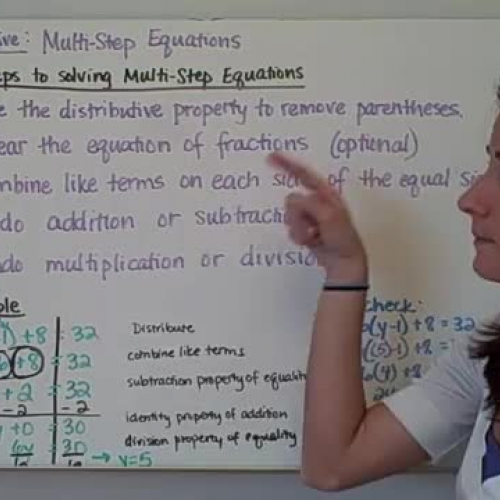 ive: Multi-Step Equations
eps to solving Multi-Step Equations
e the distributive property to remove parentheses.
ear the equation of fractions (optional)
mbine like terms on each side of the equal si
do addition or subtractio
do multiplication or divisio
ple
1) +8 = 32 Distribute
+8 = 32 combine like terms
+ 2 = 32 subtraction property of equality
-2 -2
+0 = 30 identity property of addition
6y 30 division property of equality
→ y=5
check:
6(y-1) + 8 = 32
(5)-1) + 8 =
6(4) + 8